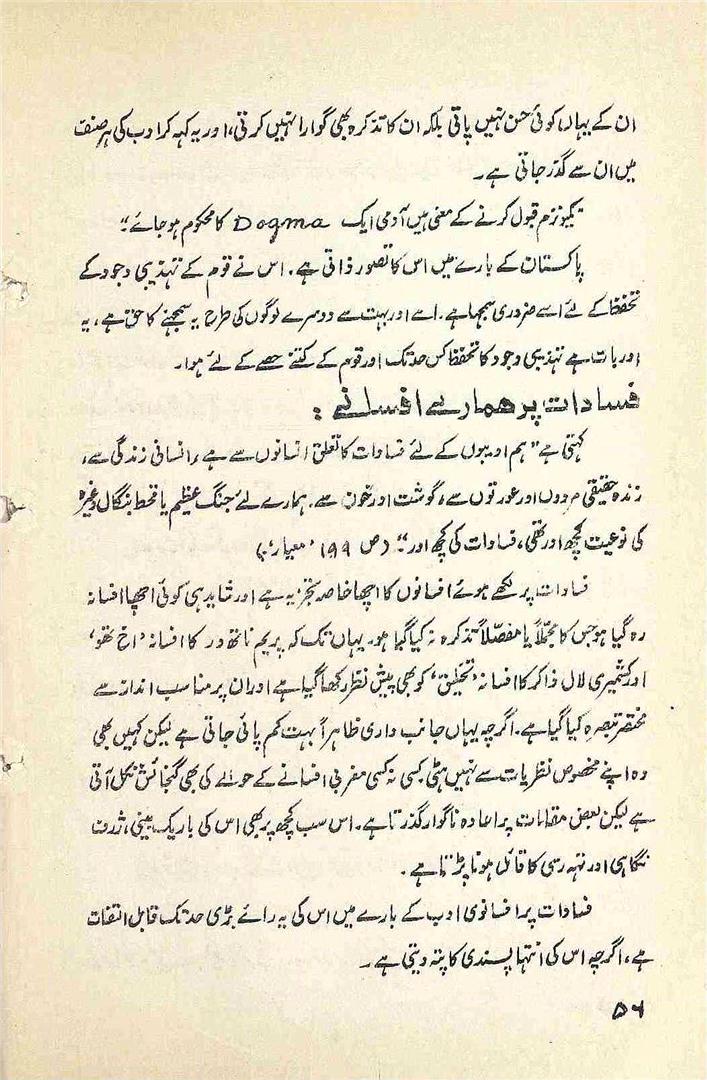 ان کے یہاں کوئی حسن نہیں پاتی بلکہ ان کا تذکرہ بھی گوارا نہیں کرتی، اور یہ کہہ کر ادب کی ہر صنف
میں ان سے گذر جاتی ہے۔
"کمیونزم قبول کرنے کے معنی ہیں آدمی ایک Dogma کا محکوم ہو جائے۔"
پاکستان کے بارے میں اس کا تصور ذاتی ہے۔ اس نے قوم کے تہذیبی وجود کے
تحفظ کے لئے اسے ضروری سمجھا ہے۔ اسے اور بہت سے دوسرے لوگوں کی طرح یہ سمجھنے کا حق ہے، یہ
اور بات ہے تہذیبی وجود کا تحفظ کس حد تک اور قوم کے کتنے حصے کے لئے ہوا۔
فسادات پر ہمارے افسانے :
کہتی ہے "ہم ادیبوں کے لئے فسادات کا تعلق انسانوں سے ہے، انسانی زندگی سے،
زندہ حقیقی مردوں اور عورتوں سے، گوشت اور خون سے۔ ہمارے لئے جنگ عظیم یا قحط بنگال وغیرہ
کی نوعیت کچھ اور تھی، فسادات کی کچھ اور۔" (ص ۱۹۹ 'معیار')
فسادات پر لکھے ہوئے افسانوں کا اچھا خاصہ تجزیہ ہے اور شاید ہی کوئی اچھا افسانہ
رہ گیا ہو جس کا مجملاً یا مفصلاً تذکرہ نہ کیا گیا ہو۔ یہاں تک کہ پریم ناتھ در کا افسانہ 'اخ تھو'
اور کشمیری لال ذاکر کا افسانہ 'تخلیق' کو بھی پیش نظر رکھا گیا ہے اور ان پر مناسب انداز سے
مختصر تبصرہ کیا گیا ہے۔ اگرچہ یہاں جانب داری ظاہراً بہت کم پائی جاتی ہے لیکن کہیں بھی
وہ اپنے مخصوص نظریات سے نہیں ہٹی کسی نہ کسی مغربی افسانے کے حوالے کی بھی گنجائش نکل آتی
ہے لیکن بعض مقامات پر اعادہ ناگوار گذرتا ہے۔ اس سب کچھ پر بھی اس کی باریک بینی، ژرف
نگاہی اور تہہ رسی کا قائل ہونا پڑتا ہے۔
فسادات پر افسانوی ادب کے بارے میں اس کی یہ رائے بڑی حد تک قابل التفات
ہے، اگرچہ اس کی انتہا پسندی کا پتہ دیتی ہے۔
۵۶